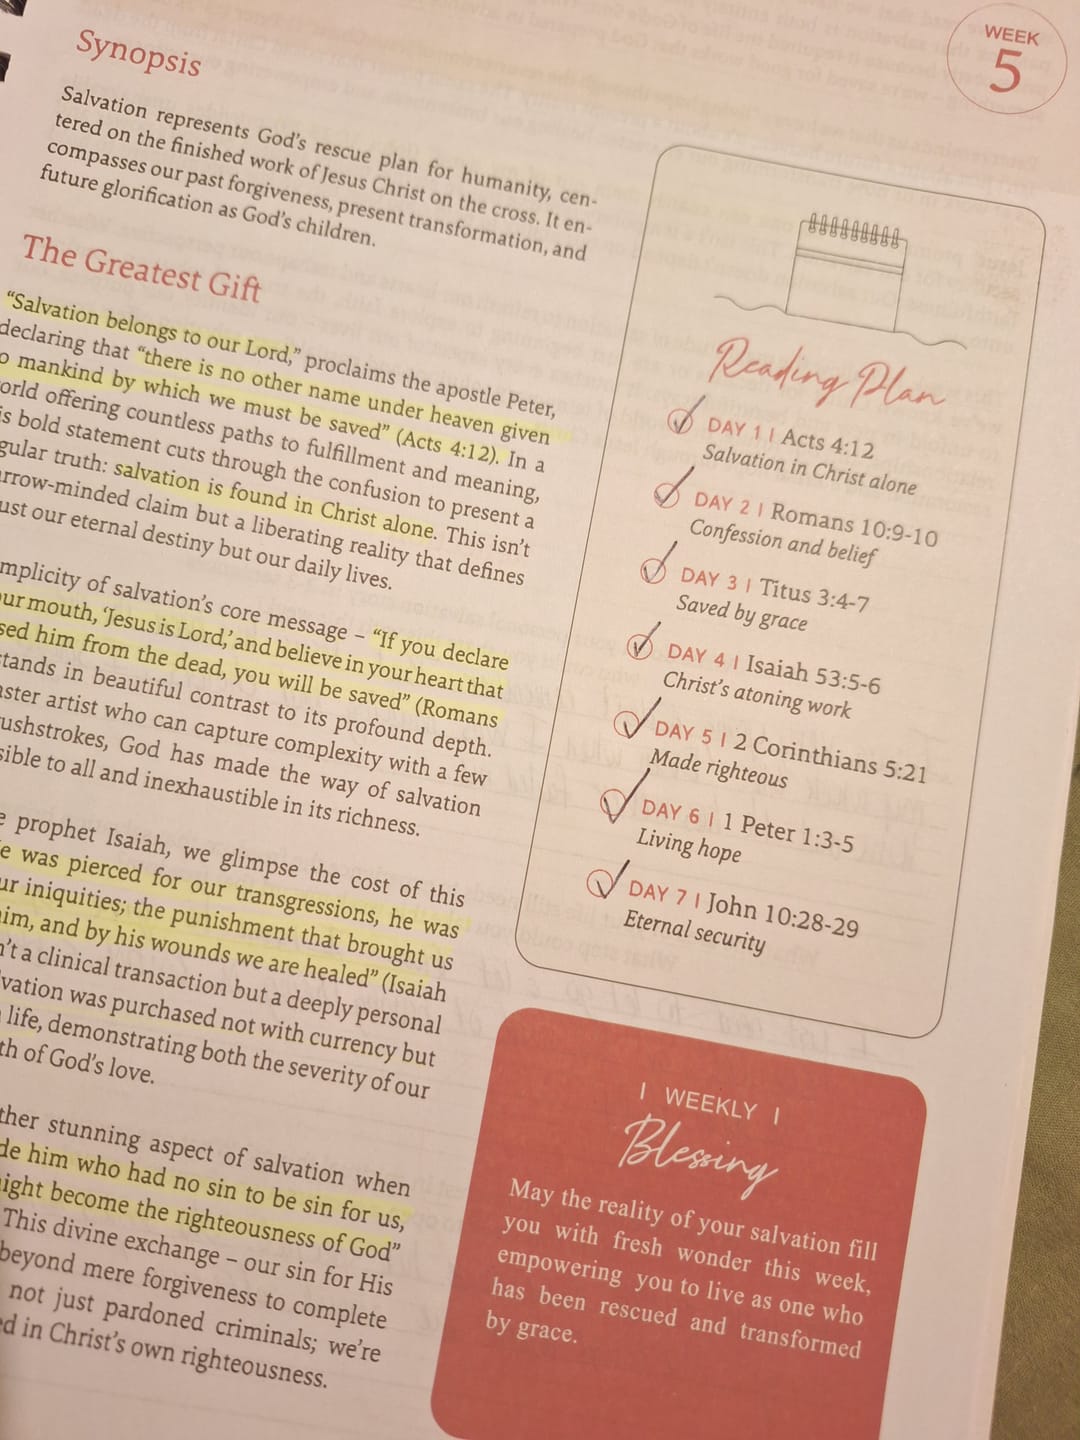 WEEK
5
Synopsis
Salvation represents God's rescue plan for humanity, cen-
tered on the finished work of Jesus Christ on the cross. It en-
compasses our past forgiveness, present transformation, and
future glorification as God's children.
The Greatest Gift
“Salvation belongs to our Lord,” proclaims the apostle Peter,
declaring that “there is no other name under heaven given
o mankind by which we must be saved” (Acts 4:12). In a
orld offering countless paths to fulfillment and meaning,
is bold statement cuts through the confusion to present a
gular truth: salvation is found in Christ alone. This isn't
rrow-minded claim but a liberating reality that defines
ust our eternal destiny but our daily lives.
mplicity of salvation's core message – “If you declare
ur mouth, ‘Jesus is Lord,’ and believe in your heart that
sed him from the dead, you will be saved” (Romans
tands in beautiful contrast to its profound depth.
aster artist who can capture complexity with a few
ushstrokes, God has made the way of salvation
sible to all and inexhaustible in its richness.
e prophet Isaiah, we glimpse the cost of this
e was pierced for our transgressions, he was
ur iniquities; the punishment that brought us
him, and by his wounds we are healed” (Isaiah
n't a clinical transaction but a deeply personal
lvation was purchased not with currency but
life, demonstrating both the severity of our
th of God's love.
ther stunning aspect of salvation when
de him who had no sin to be sin for us,
ight become the righteousness of God”
This divine exchange – our sin for His
beyond mere forgiveness to complete
not just pardoned criminals; we're
d in Christ's own righteousness.
Reading Plan
DAY 1 | Acts 4:12
Salvation in Christ alone
DAY 2 | Romans 10:9-10
Confession and belief
DAY 3 | Titus 3:4-7
Saved by grace
DAY 4 | Isaiah 53:5-6
Christ's atoning work
DAY 5 | 2 Corinthians 5:21
Made righteous
DAY 6 | 1 Peter 1:3-5
Living hope
DAY 7 | John 10:28-29
Eternal security
| WEEKLY |
Blessing
May the reality of your salvation fill
you with fresh wonder this week,
empowering you to live as one who
has been rescued and transformed
by grace.